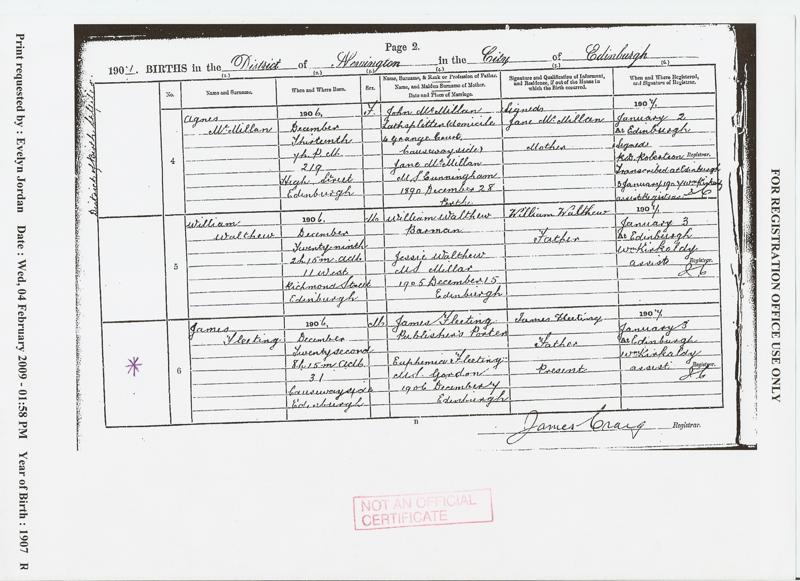 Page 2.
1907. BIRTHS in the District of Newington in the City of Edinburgh
(1.) (2.) (3.) (4.) (5.) (6.)
No. Name and Surname. When and Where Born. Sex. Name, Surname, & Rank or Profession of Father. Name, and Maiden Surname of Mother. Date and Place of Marriage. Signature and Qualification of Informant, and Residence, if out of the House in which the Birth occurred. When and Where Registered, and Signature of Registrar.
4
Agnes
McMillan
1906,
December
Thirteenth
7h. P.M.
219
High Street
Edinburgh
F.
John McMillan
Lathsplitter (domicile
4 Grange Court
Causewayside)
Jane McMillan
M.S. Cunningham
1890 December 28
Signed
Jane McMillan
Mother
1907,
January 2
At Edinburgh
Signed
Robertson Registrar.
Transcribed at Edinburgh
3 January 1907 Wm Kirkaldy
assist Registrar
JC
5
William
Walthew
1906,
December
Twenty ninth
2h. 15m. A.M.
11 West
Richmond Street
Edinburgh
M.
William Walthew
Barman
Jessie Walthew
M.S. Millar
1905 December 15
Edinburgh
William Walthew
Father
1907,
January 3
At Edinburgh
Wm Kirkaldy
assist Registrar.
JC
6
James
Fleeting
1906,
December
Twenty second
8h. 15m. A.M.
31
Causewayside
Edinburgh
M.
James Fleeting
Publisher's Porter
Euphemia Fleeting
M.S. Gordon
1906 December 7
Edinburgh
James Fleeting
Father
Present
1907,
January 3
At Edinburgh
Wm Kirkaldy
assist Registrar.
JC
James Craig Registrar.
NOT AN OFFICIAL
CERTIFICATE
FOR REGISTRATION OFFICE USE ONLY
Print requested by : Evelyn Jordan Date : Wed, 04 February 2009 - 01:58 PM Year of Birth : 1907 R